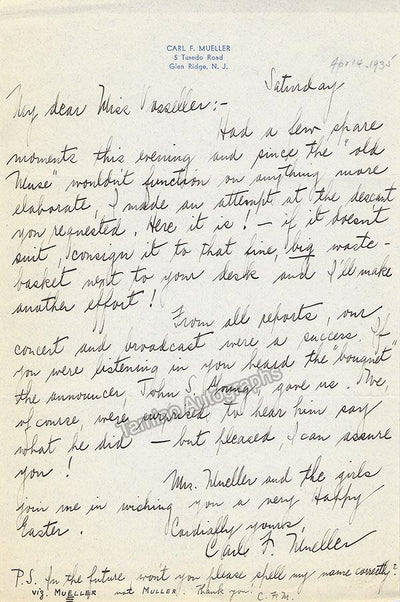 CARL F. MUELLER
5 Tuxedo Road
Glen Ridge, N. J.
Apr 14 - 1935
Saturday
My dear Miss Vosseller:-
Had a few spare
moments this evening and since the "old
Muse" wouldn't function on anything more
elaborate, I made an attempt at the descant
you requested. Here it is! - if it doesn't
suit, consign it to that fine, big waste-
basket next to your desk and I'll make
another effort!
From all reports, our
concert and broadcast were a success. If
you were listening in you heard the "bouquet"
the announcer, John S. Young, gave us. We,
of course, were surprised to hear him say
what he did - but pleased, I can assure
you!
Mrs. Mueller and the girls
join me in wishing you a very Happy
Easter.
Cordially yours,
Carl F. Mueller
P.S. In the future won't you please spell my name correctly?
viz. MUELLER not MULLER. Thank you. C.F.M.
Tamino Autographs